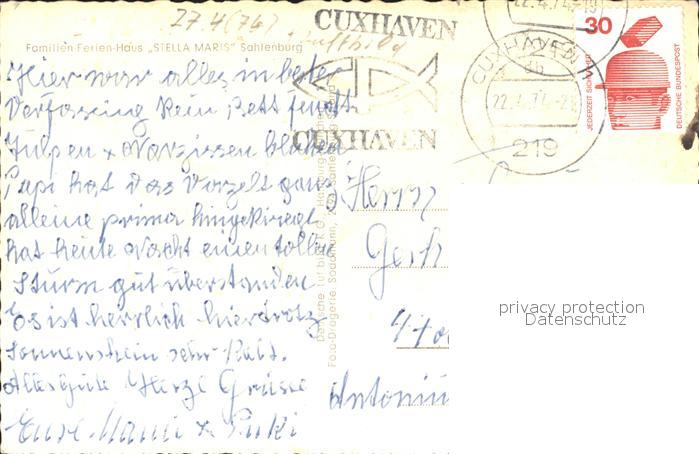 27.4.(74)
CUXHAVEN
Familien-Ferien-Haus „STELLA MARIS" Sahlenburg
22.4.74-19
30
JEDERZEIT SICHERHEIT
DEUTSCHE BUNDESPOST
CUXHAVEN
22.4.74-21
219
CUXHAVEN
Hier war alles in bester
Verfassung kein Bett feucht
Tulpen + Narzissen blühen
Papi hat das Vorzelt ganz
alleine prima hingekriegt
hat heute Nacht einen tollen
Sturm gut überstanden
Es ist herrlich hier trotz
Sonnenschein sehr kalt.
Alles Gute Herzl Grüsse
Eure Mami +
Herrn
Gerh
Antoniu
privacy protection
Datenschutz